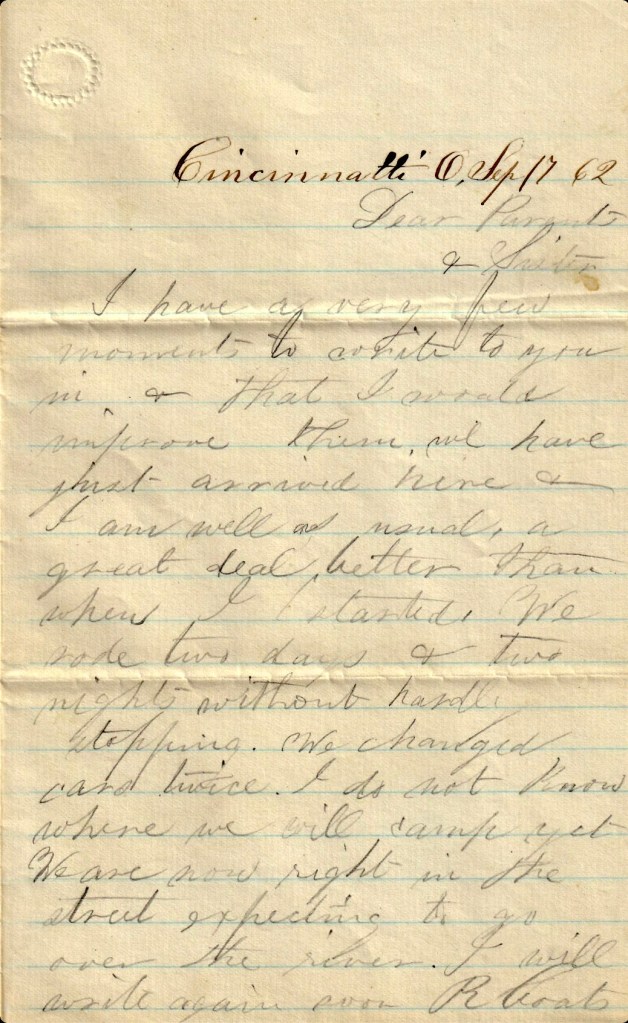 Cincinnatti O, Sep/17 62
Dear Parents
& Sister
I have a very few
moments to write to you
in & that I would
improve them. we have
just arrived here &
I am well as usual, a
great deal better than
when I started. We
rode two days & two
nights without hardly
stopping. We changed
cars twice. I do not know
where we will camp yet
We are now right in the
street expecting to go
over the river. I will
write again soon R Coats